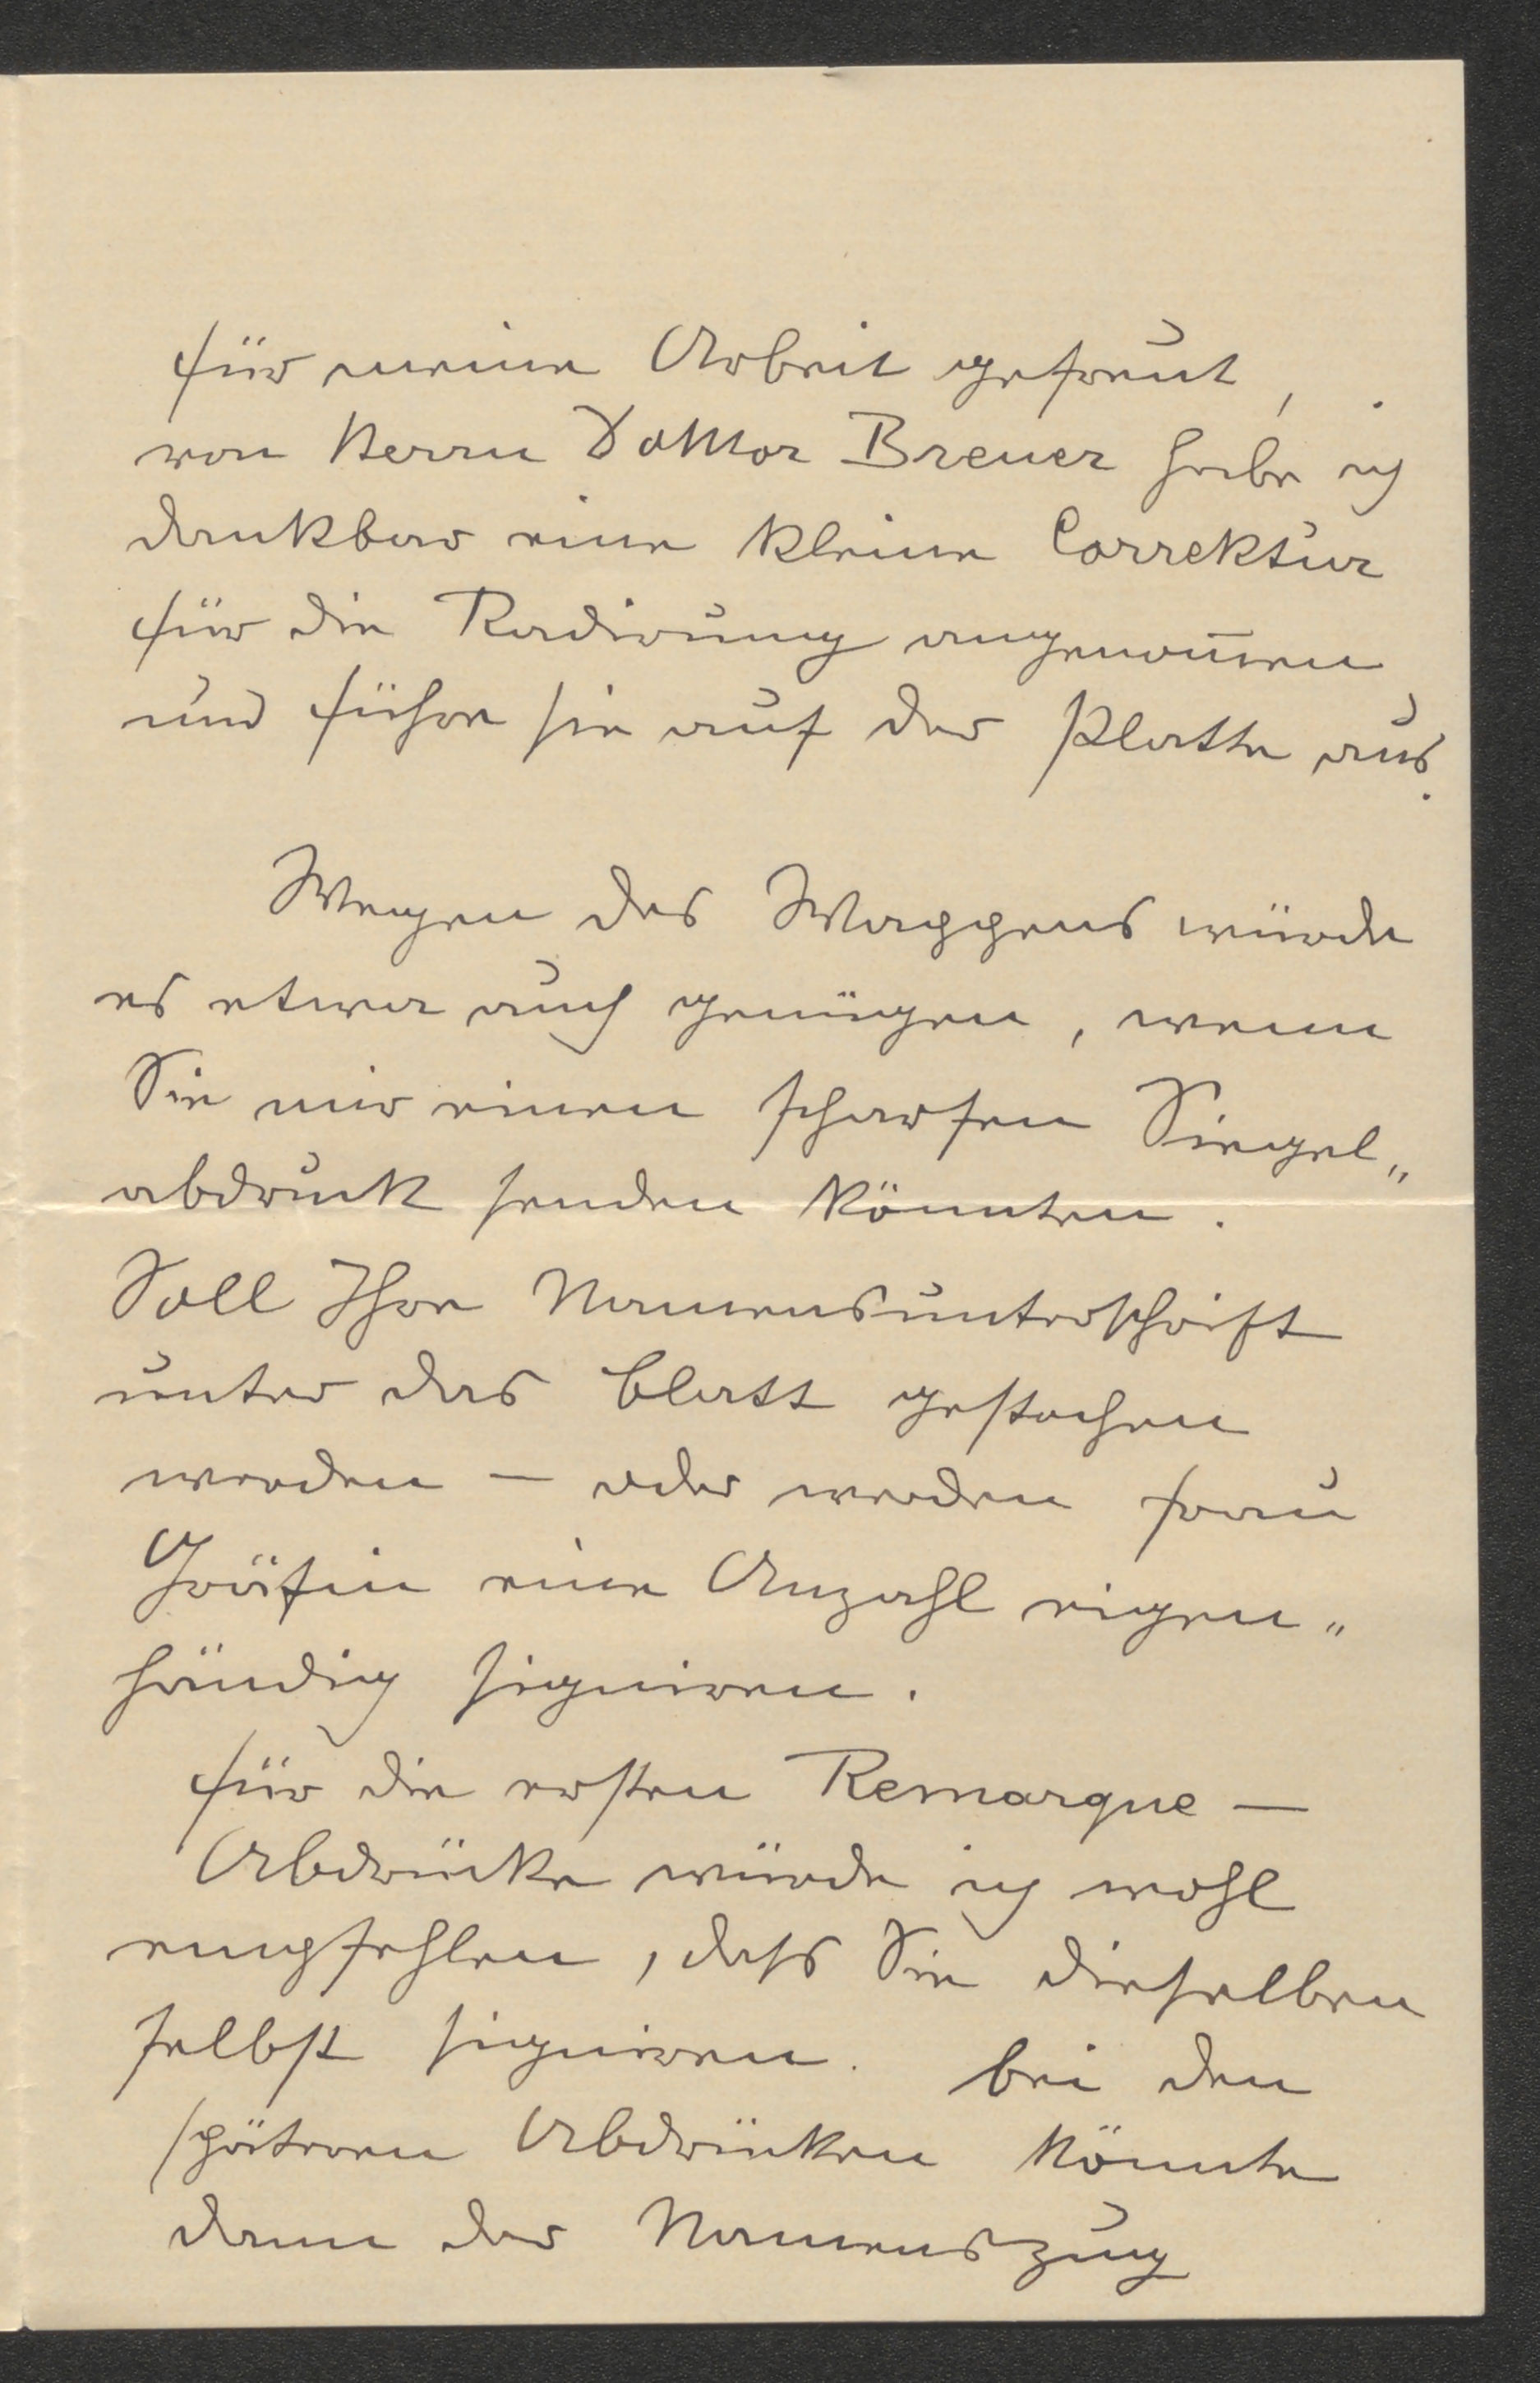 für meine Arbeit gefreut,
von Herrn Doktor Breuer habe ich
dankbar eine kleine Correktur
für die Radirung angenom̄en
und führe sie auf der Platte aus.
Wegen des Wappens würde
es etwa auch genügen, wenn
Sie mir einen scharfen Siegel„
abdruck senden könnten.
Soll Ihre Namensunterschrift
unter das Blatt gestochen
werden – oder werden Frau
Gräfin eine Anzahl eigen„
händig signiren.
Für die ersten Remarque –
Abdrücke würde ich wohl
empfehlen, dass Sie dieselben
selbst signiren. Bei den
späteren Abdrücken könnte
dann der Namenszug